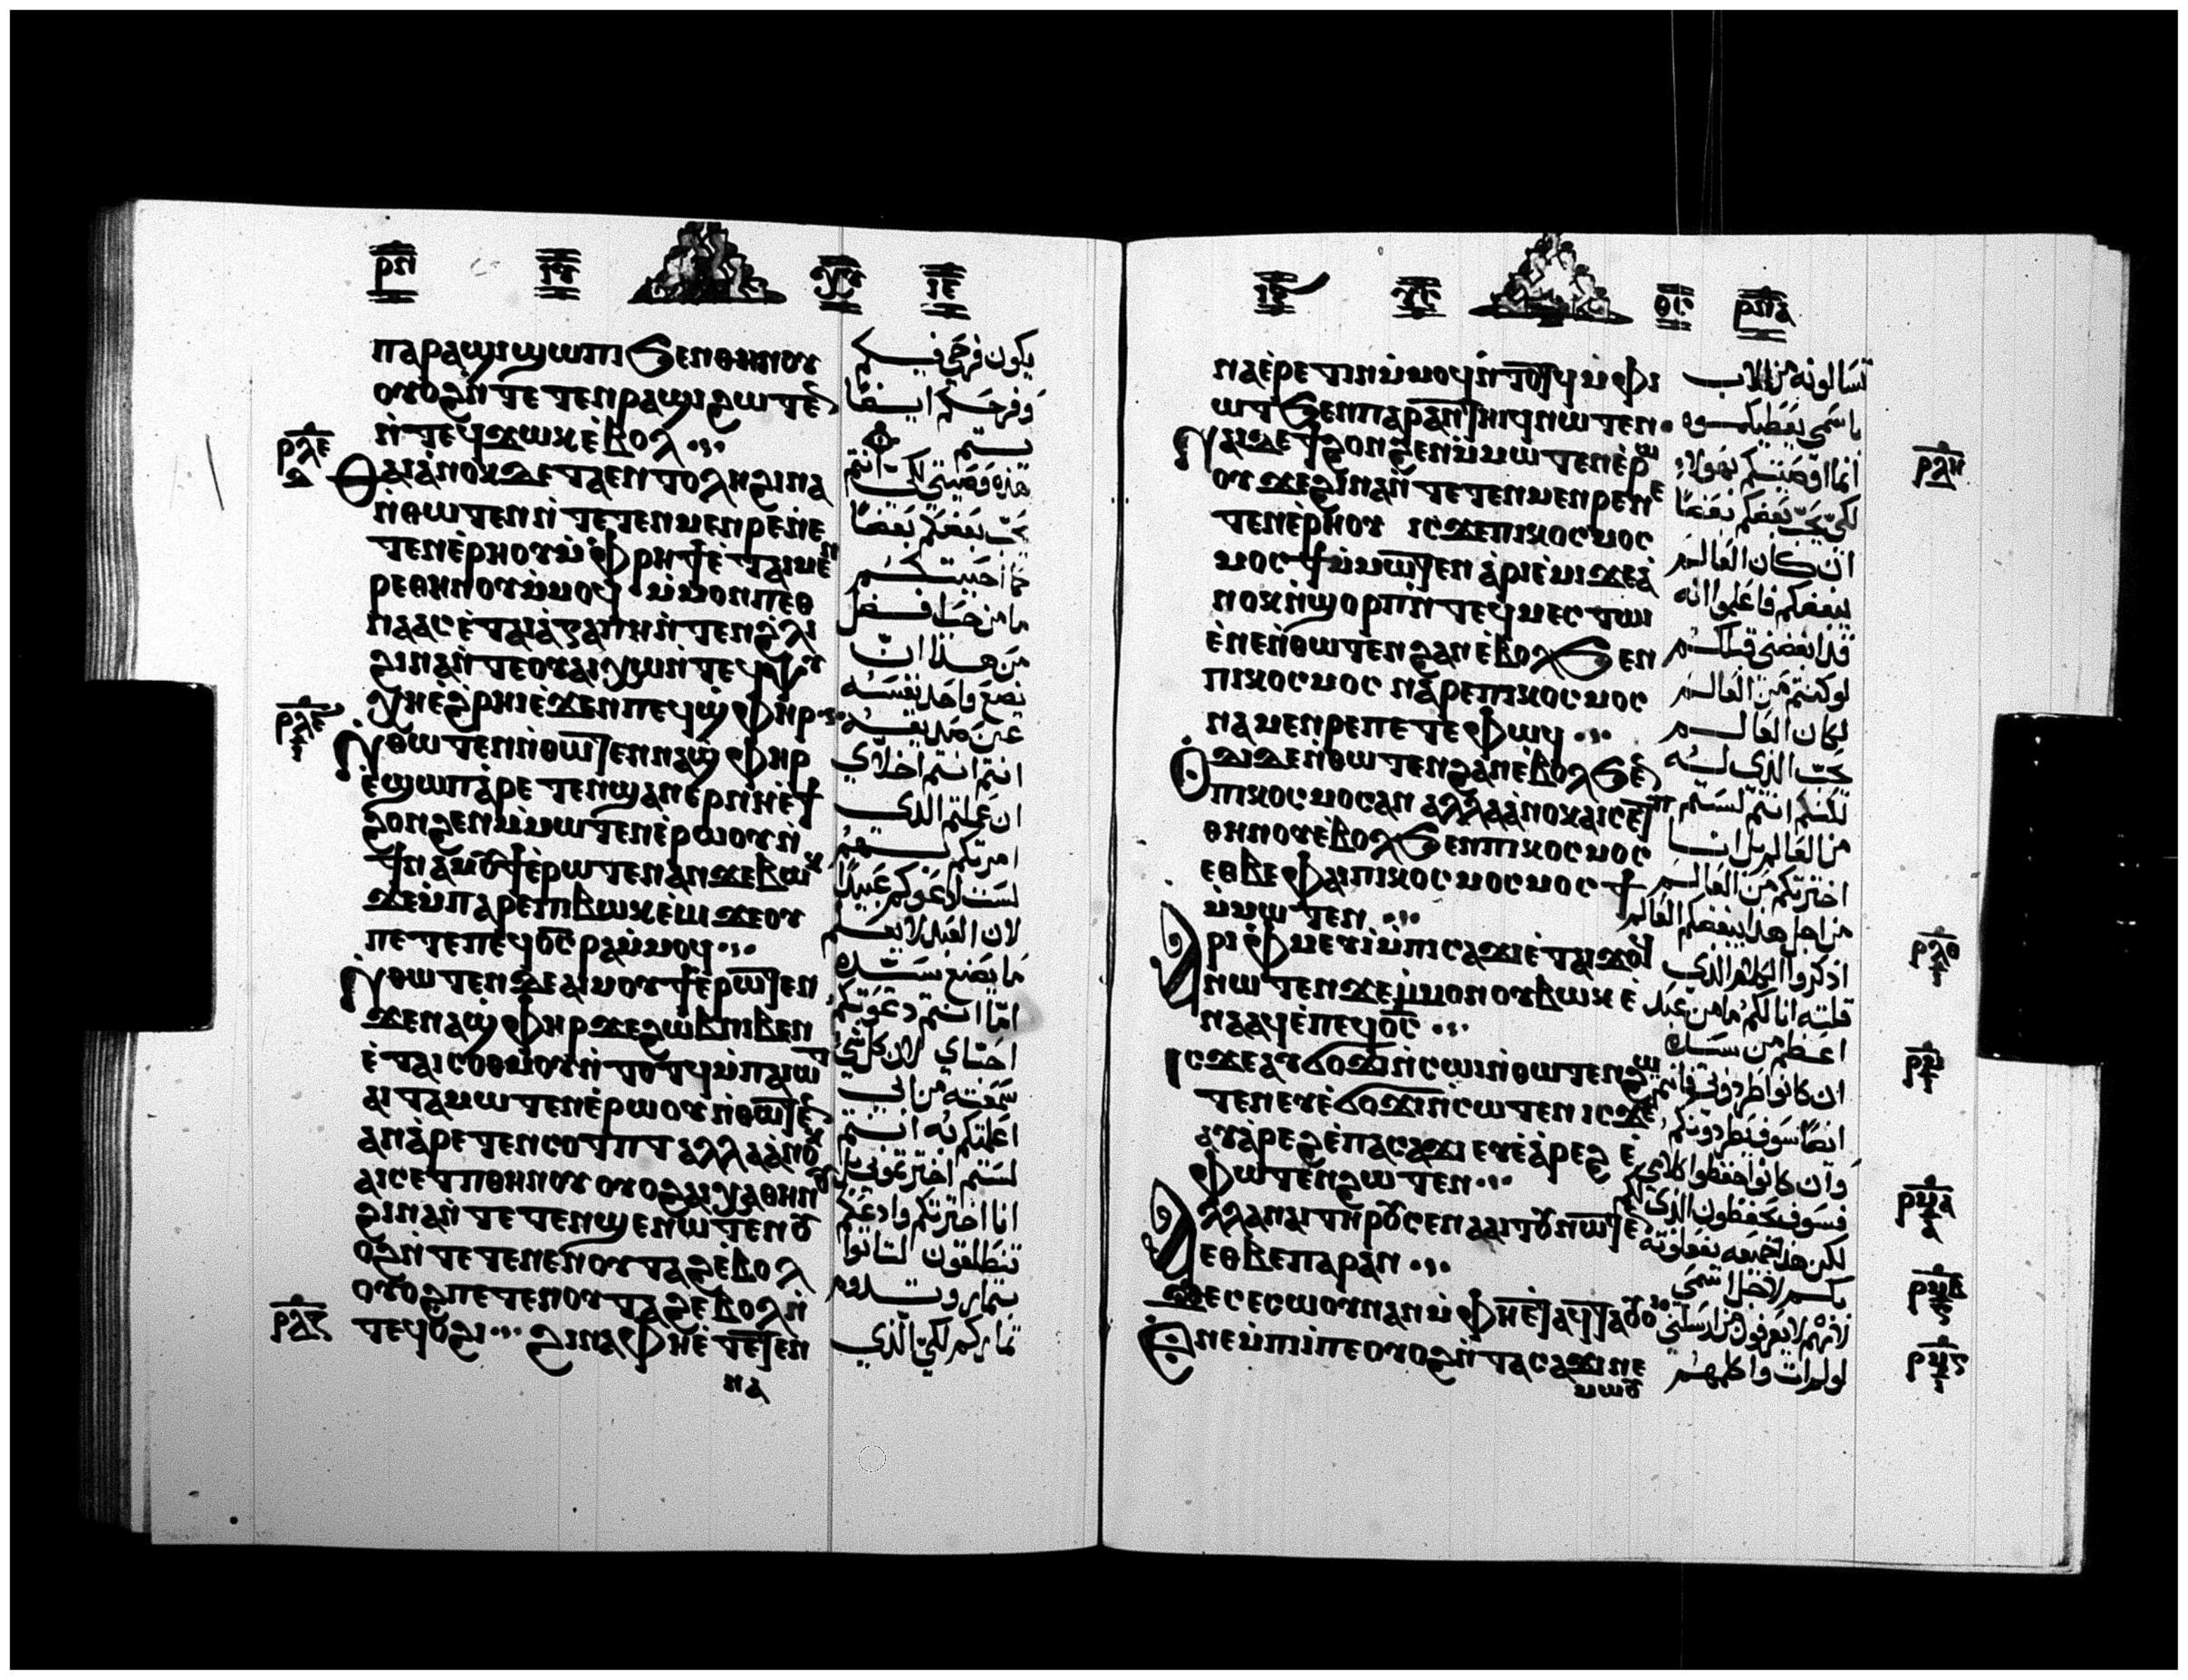 ⲣⲡ
ⲓⲉ
ⲡⲁⲣⲁϣⲓ ϣⲱⲡⲓ ϧⲉⲛⲑⲏⲛⲟⲩ
ⲟⲩⲟϩ ⲛ̀ⲧⲉⲧⲉⲛⲣⲁϣⲓ ϩⲱⲧⲉ
ⲛ̀ⲧⲉϥϫⲱⲕ ⲉ̀ⲃⲟⲗ
ⲣⲗⲉ
ⲑⲁⲓ ⲁⲛⲟⲕ ⲇⲉ ⲧⲁⲉⲛⲧⲟⲗⲏ ϩⲓⲛⲁ
ⲛ̀ⲑⲱⲧⲉⲛ ⲛ̀ⲧⲉⲧⲉⲛⲙⲉⲛⲣⲉ ⲛⲉ
ⲧⲉⲛⲉ̀ⲣⲏⲟⲩ ⲙ̀ⲫⲣⲏϯ ⲉ̀ⲧⲁⲓⲙⲉⲛ
ⲣⲉ ⲑⲏⲛⲟⲩ ⲙ̀ⲙⲟϥ ⲙ̀ⲙⲟⲛ ⲡⲉⲑ
ⲛⲁⲁⲥ ⲉ̀ⲧⲁⲓⲁ̀ⲅⲁⲡⲏ ⲛ̀ⲧⲉⲛ ϩ̀ⲗⲓ
ϩⲓⲛⲁ ⲛ̀ⲧⲉ ⲟⲩⲁⲓ ⲭⲱ ⲛ̀ⲧⲉϥⲯⲩ
ⲭⲏ ⲉ̀ϩ̀ⲣⲏⲓ ⲉ̀ϫⲉⲛ ⲡⲉϥϣ̀ⲫⲏⲣ
ⲛ̀ⲑⲱⲧⲉⲛ ⲛ̀ⲑⲱⲧⲉⲛ ⲛⲁϣ̀ⲫⲏⲣ
ⲉ̀ϣⲱⲡ ⲁⲣⲉⲧⲉⲛϣⲁⲛⲉⲣ ⲛⲏ ⲉ̀ϯ
ϩⲟⲛϩⲉⲛ ⲙ̀ⲙⲱⲧⲉⲛ ⲉ̀ⲣⲱⲟⲩ ⲛ̀
ϯⲛⲁⲙⲟⲩϯ ⲉ̀ⲣⲱⲧⲉⲛ ⲁⲛ ϫⲉ ⲃⲱⲕ
ϫⲉ ⲙ̀ⲡⲁⲣⲉ ⲡⲓⲃⲱⲕ ⲉ̀ⲙⲓ ϫⲉ ⲟⲩ
ⲡⲉⲧⲉ ⲡⲉϥϭⲥ ⲣⲁ ⲙ̀ⲙⲟϥ
ⲛ̀ⲑⲱⲧⲉⲛ ⲇⲉ ⲁⲓⲙⲟⲩϯ ⲉ̀ⲣⲱⲧⲉⲛ
ϫⲉ ⲛⲁϣ̀ⲫⲏⲣ ϫⲉ ϩⲱⲃ ⲛⲓⲃⲉⲛ
ⲉ̀ⲧⲁⲓⲥⲟⲑⲙⲟⲩ ⲛ̀ⲧⲟⲧϥ ⲙ̀ⲡⲁⲓⲱⲧ
ⲁⲓⲧⲁⲙⲱⲧⲉⲛ ⲉ̀ⲣⲱⲟⲩ ⲛ̀ⲑⲱⲧⲉⲛ
ⲁⲛ ⲁ̀ⲣⲉⲧⲉⲛⲥⲟⲧⲡⲧ ⲁⲗⲗⲁ ⲁ̀ⲛⲟⲕ
ⲁⲓⲥⲉⲧⲡ ⲑⲏⲛⲟⲩ ⲟⲩⲟϩ ⲁⲓⲭⲁ ⲑⲏⲛⲟⲩ
ϩⲓⲛⲁ ⲛ̀ⲧⲉⲧⲉⲛϣⲉ ⲛⲱⲧⲉⲛ ⲟⲩ
ⲟϩ ⲛ̀ⲧⲉⲧⲉⲛⲉⲛ ⲟⲩⲧⲁϩ ⲉ̀ⲃⲟⲗ
ⲟⲩⲟϩ ⲡⲉⲧⲉⲛⲟⲩⲧⲁϩ ⲉⲃⲟⲗ ⲛ̀
ⲣⲗⲍ
ⲧⲉϥⲟϩⲓ ϩⲓⲛⲁ ⲫⲏ ⲉ̀ⲧⲉⲧⲉⲛ
ⲛⲁ
يكون فرحي فيكم
وفرحكم ايضا
يتم
هذه وصيتي لكي انتم
يحب بعضكم بعضا
كما احببتكم
ما من حب افضل
من هذا ان
يضع واحد نفسه
عن صديقه
انتم انتم اخلاي
ان عملتم الذي
امرتكم به
لست ادعوكم عبيدا
لان العبد لا يعلم
ما يصنع سيده
اما انتم دعوتكم
احباي لان كل شي
سمعته من ابي
اعلمتكم به انتم
لستم اخترتموني بل
انا اخترتكم وادعكم
تنطلقون لتاتوا
بثمار وتدوم
ثماركم لكي الذي
ⲣⲡⲁ
ⲛⲁⲉ̀ⲣⲉⲧⲓⲛ ⲙ̀ⲙⲟϥ ⲛ̀ⲧⲟⲧϥ ⲙ̀ⲫⲓ
ⲱⲧ ϧⲉⲛ ⲡⲁⲣⲁⲛ ⲧⲏⲓϥ ⲛⲱⲧⲉⲛ
ⲣⲗⲏ
ⲛⲁⲓ ⲇⲉ ϯϩⲟⲛϩⲉⲛ ⲙ̀ⲙⲱⲧⲉⲛ ⲉ̀ⲣⲱ
ⲟⲩ ϫⲉ ϩⲓⲛⲁ ⲛ̀ⲧⲉⲧⲉⲛⲙⲉⲛⲣⲉ ⲛⲉ
ⲧⲉⲛⲉ̀ⲣⲏⲟⲩ ⲓⲥϫⲉ ⲡⲓⲕⲟⲥⲙⲟⲥ
ⲙⲟⲥϯ ⲙ̀ⲙⲱⲧⲉⲛ ⲁ̀ⲣⲓⲉ̀ⲙⲓ ϫⲉ ⲁ̀
ⲛⲟⲕ ⲛ̀ϣⲟⲣⲡ ⲛ̀ⲧⲉϥⲙⲉⲥⲧⲱⲓ
ⲉ̀ⲛⲉ ⲛ̀ⲑⲱⲧⲉⲛ ϩⲁⲛ ⲉ̀ⲃⲟⲗ ϧⲉⲛ
ⲡⲓⲕⲟⲥⲙⲟⲥ ⲛⲁⲣⲉ ⲡⲓⲕⲟⲥⲙⲟⲥ
ⲛⲁⲙⲉⲛⲣⲉ ⲡⲉⲧⲉ ⲫⲱϥ
ⲟⲩⲇⲓ ⲇⲉ ⲛ̀ⲑⲱⲧⲉⲛ ϩⲁⲛ ⲉ̀ⲃⲟⲗ ϧⲉⲛ
ⲡⲓⲕⲟⲥⲙⲟⲥ ⲁⲛ ⲁⲗⲗⲁ ⲁ̀ⲛⲟⲕ ⲁⲓⲥⲉⲧⲡ
ⲑⲏⲛⲟⲩ ⲉ̀ⲃⲟⲗ ϧⲉⲛ ⲡⲓⲕⲟⲥⲙⲟⲥ
ⲉⲑⲃⲉ ⲫⲁⲓ ⲡⲓⲕⲟⲥⲙⲟⲥ ⲙⲟⲥϯ
ⲙ̀ⲙⲱⲧⲉⲛ
ⲣⲗⲑ
ⲁⲣⲓⲫⲙⲉⲩⲓ ⲙ̀ⲡⲓⲥⲁϫⲓ ⲉ̀ⲧⲁⲓϫⲟϥ
ⲛⲱⲧⲉⲛ ϫⲉ ⲙ̀ⲙⲟⲛ ⲟⲩⲃⲱⲕ ⲉ̀
ⲛⲁⲁϥ ⲉ̀ⲡⲉϥϭⲥ
ⲣⲙ
ⲓⲥϫⲉ ⲁⲩϭⲟϫⲓ ⲛ̀ⲥⲱⲓ ⲛ̀ⲑⲱⲧⲉⲛ ϩⲱ
ⲧⲉⲛ ⲉⲩⲉ̀ϭⲟϫⲓ ⲛ̀ⲥⲱⲧⲉⲛ ⲓⲥϫⲉ
ⲁⲩⲁ̀ⲣⲉϩ ⲉ̀ⲡⲁⲥⲁϫⲓ ⲉⲩⲉ̀ⲁ̀ⲣⲉϩ ⲉ̀
ⲫⲱⲧⲉⲛ ϩⲱⲧⲉⲛ
ⲣⲙⲁ
ⲁⲗⲗⲁ ⲛⲁⲓ ⲧⲏⲣⲟⲩ ⲥⲉⲛⲁⲁⲓⲧⲟⲩ ⲛⲱⲧⲉⲛ
ⲉⲑⲃⲉ ⲡⲁⲣⲁⲛ
ⲣⲙⲃ
ϫⲉ ⲥⲉⲥⲱⲟⲩⲛ ⲁⲛ ⲙ̀ⲫⲏ ⲉ̀ⲧⲁϥⲧⲁⲟⲩⲟⲓ
ⲉⲛⲉ ⲙ̀ⲡⲓⲓ̀ ⲡⲉ ⲟⲩⲟϩ ⲛ̀ⲧⲁⲥⲁϫⲓ ⲛⲉ
ⲙⲱⲟⲩ
تسالونه من الاب
باسمي يعطيكموه
انما اوصيتكم بهولاء
لكي يحب بعضكم بعضا
ان كان العالم
يبغضكم فاعلموا انه
قد ابغضني قبلكم
لو كنتم من العالم
لكان العالم
يحب الذي له
لكنكم انتم لستم
من العالم بل انا
اخترتكم من العالم
من اجل هذا يبغضكم العالم
اذكروا الكلام الذي
قلته انا لكم ما من عبد
اعظم من سيده
ان كانوا طردوني فانتم
ايضا سوف يطردونكم
وان كانوا حفظوا كلامي
فسوف يحفظون الذي لكم
لكن هذا جميعه يفعلونه
بكم لاجل اسمي
لانهم لا يعرفون من ارسلني
لو لم ات واكلمهم